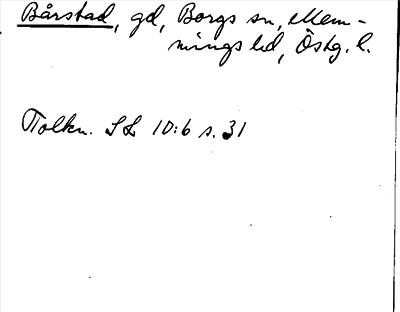 Bårstad, gd, Borgs sn, Mem-
mings hd, Östg. l.
Tolkn. SL 10:6 s. 31